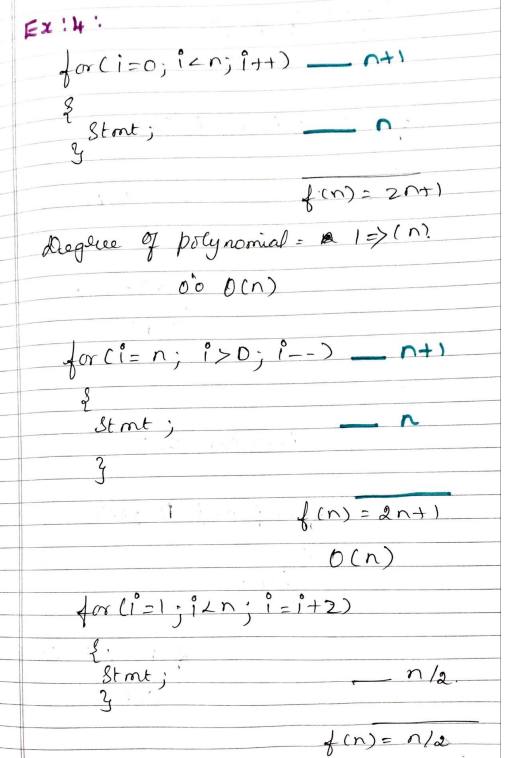 Ex:4:
for(i=0; i<n; i++) — n+1
{
Stmt; — n
}
f(n) = 2n+1
Degree of polynomial = 1 => (n)
∴ O(n)
for(i=n; i>0; i--) — n+1
{
Stmt; — n
}
f(n) = 2n+1
O(n)
for(i=1; i<n; i=i+2)
{
Stmt; — n/2
}
f(n) = n/2